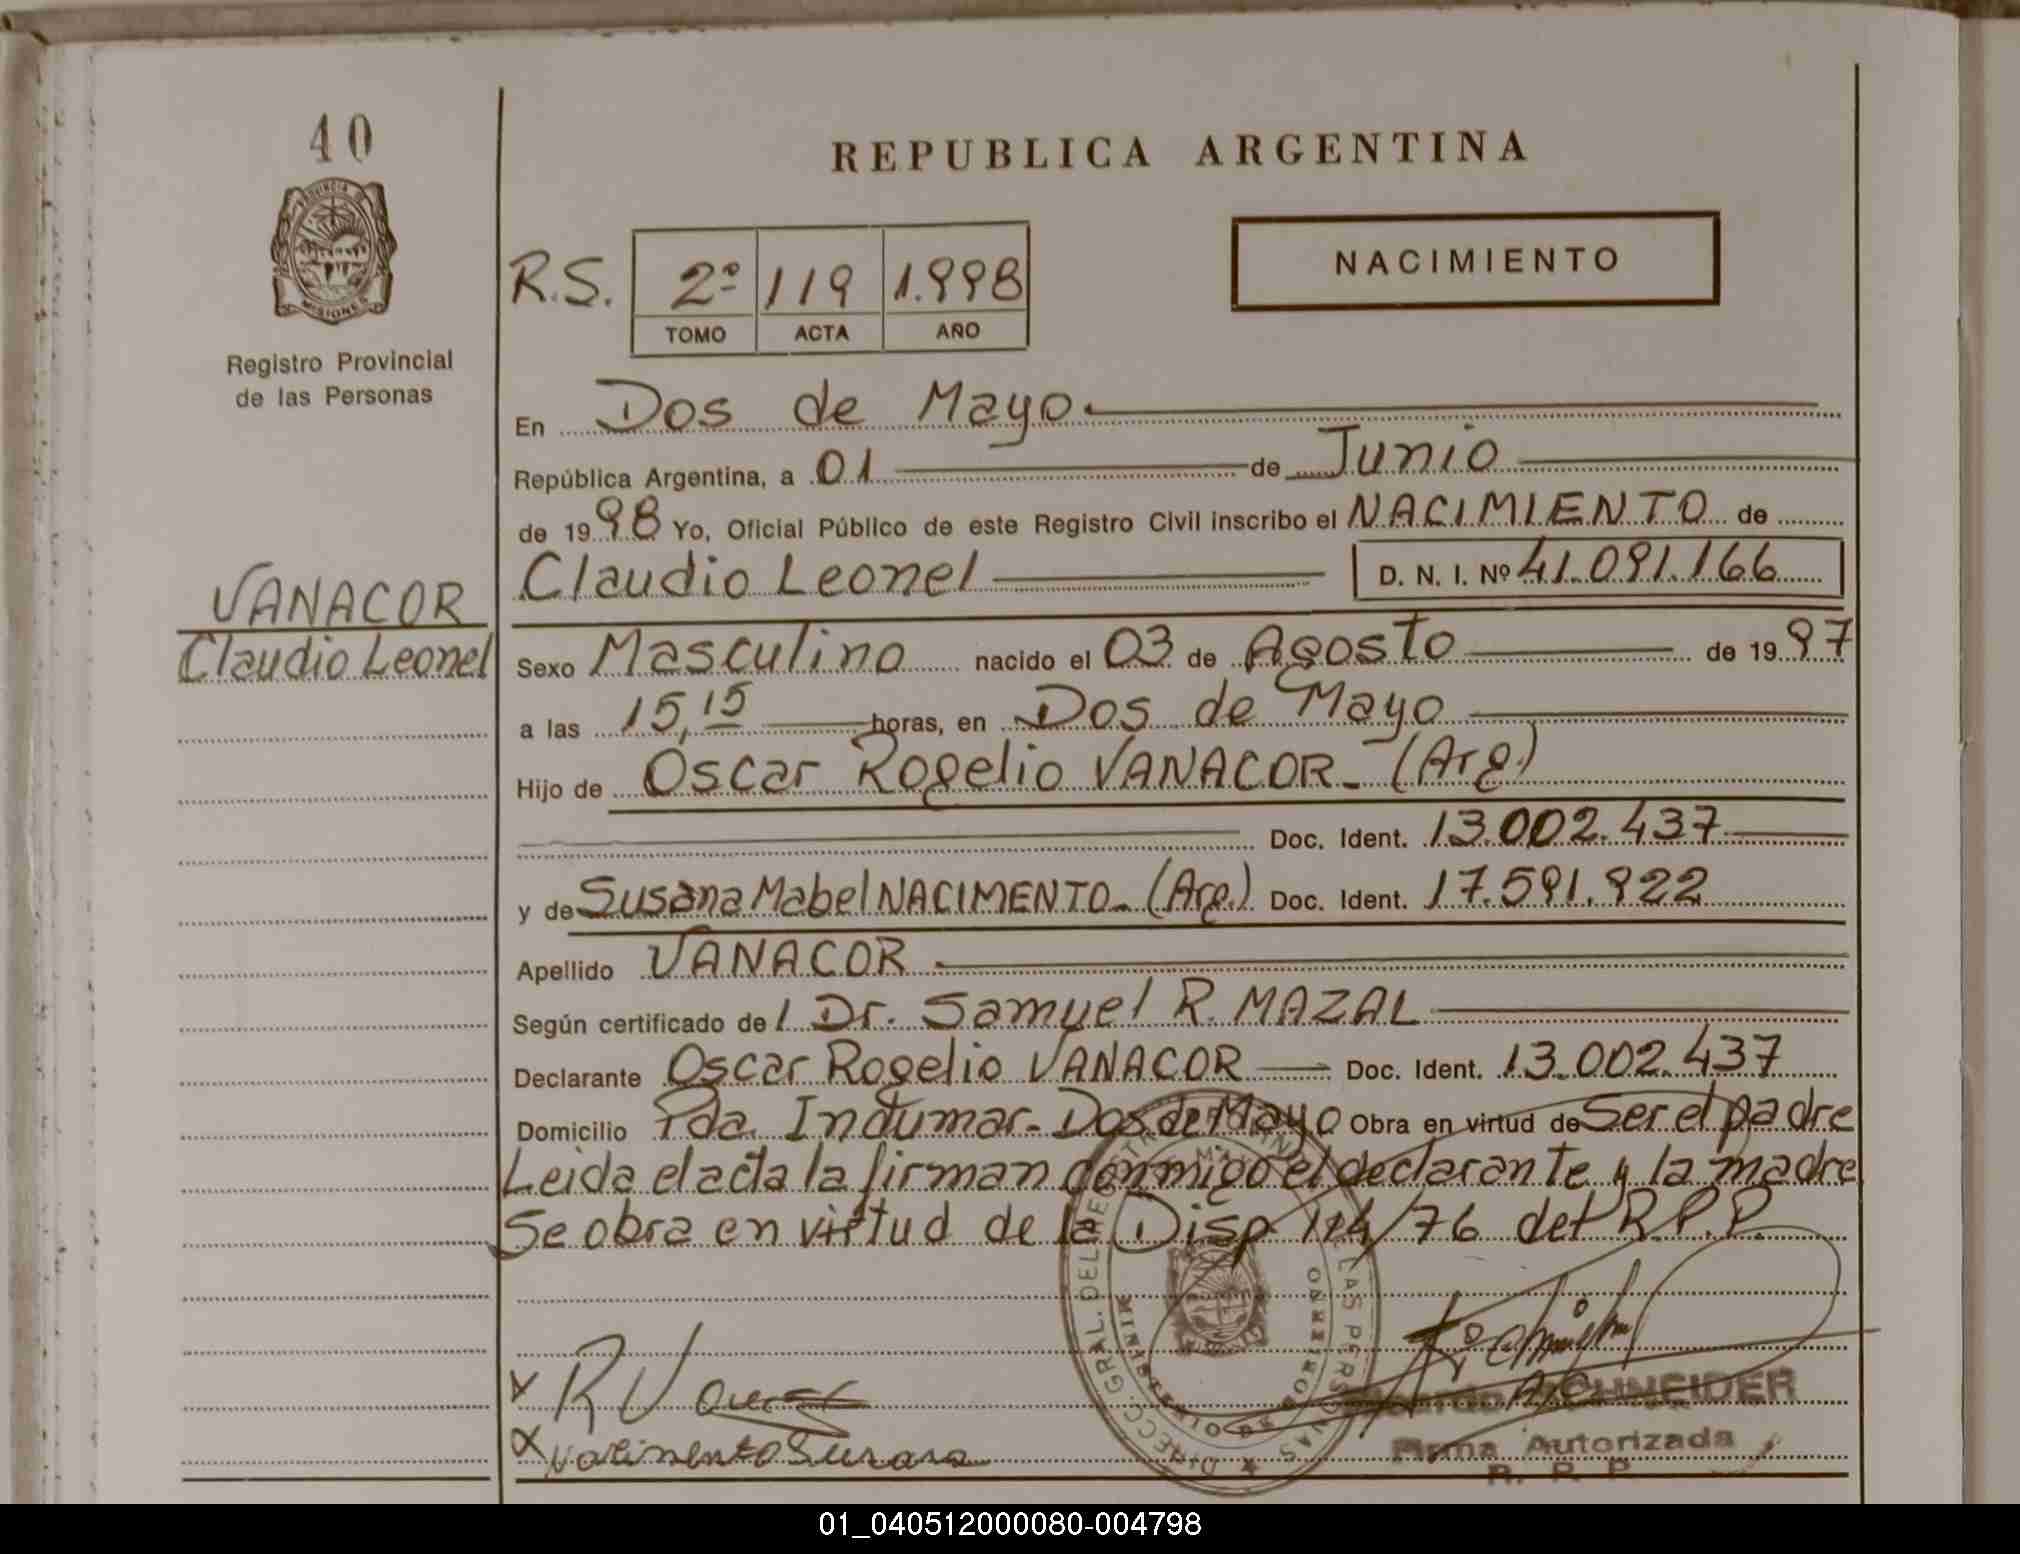 40
PROVINCIA DE
MISIONES
Registro Provincial
de las Personas
VANACOR
Claudio Leonel
REPUBLICA ARGENTINA
NACIMIENTO
R.S. 2º 119 1.998
TOMO ACTA AÑO
En Dos de Mayo.
República Argentina, a 01 de Junio
de 1998 Yo, Oficial Público de este Registro Civil inscribo el NACIMIENTO de
Claudio Leonel D. N. I. Nº 41.091.166
Sexo Masculino nacido el 03 de Agosto de 1997
a las 15,15 horas, en Dos de Mayo
Hijo de Oscar Rogelio VANACOR_ (Arg.)
Doc. Ident. 13.002.437
y de Susana Mabel NACIMENTO_ (Arg.) Doc. Ident. 17.591.922
Apellido VANACOR
Según certificado de l Dr. Samuel R. MAZAL
Declarante Oscar Rogelio VANACOR Doc. Ident. 13.002.437
Domicilio Pda. Indumar_ Dos de Mayo Obra en virtud de Ser el padre
Leida el acta la firman conmigo el declarante y la madre
Se obra en virtud de la Disp 114/76 del R.P.P.
DIRECC. GRAL. DEL LAS PERSONAS
MINIST DE GOBIERNO
x R V
x Nacimento Susana
SCHNEIDER
Firma Autorizada
R. P. P.
01_040512000080-004798